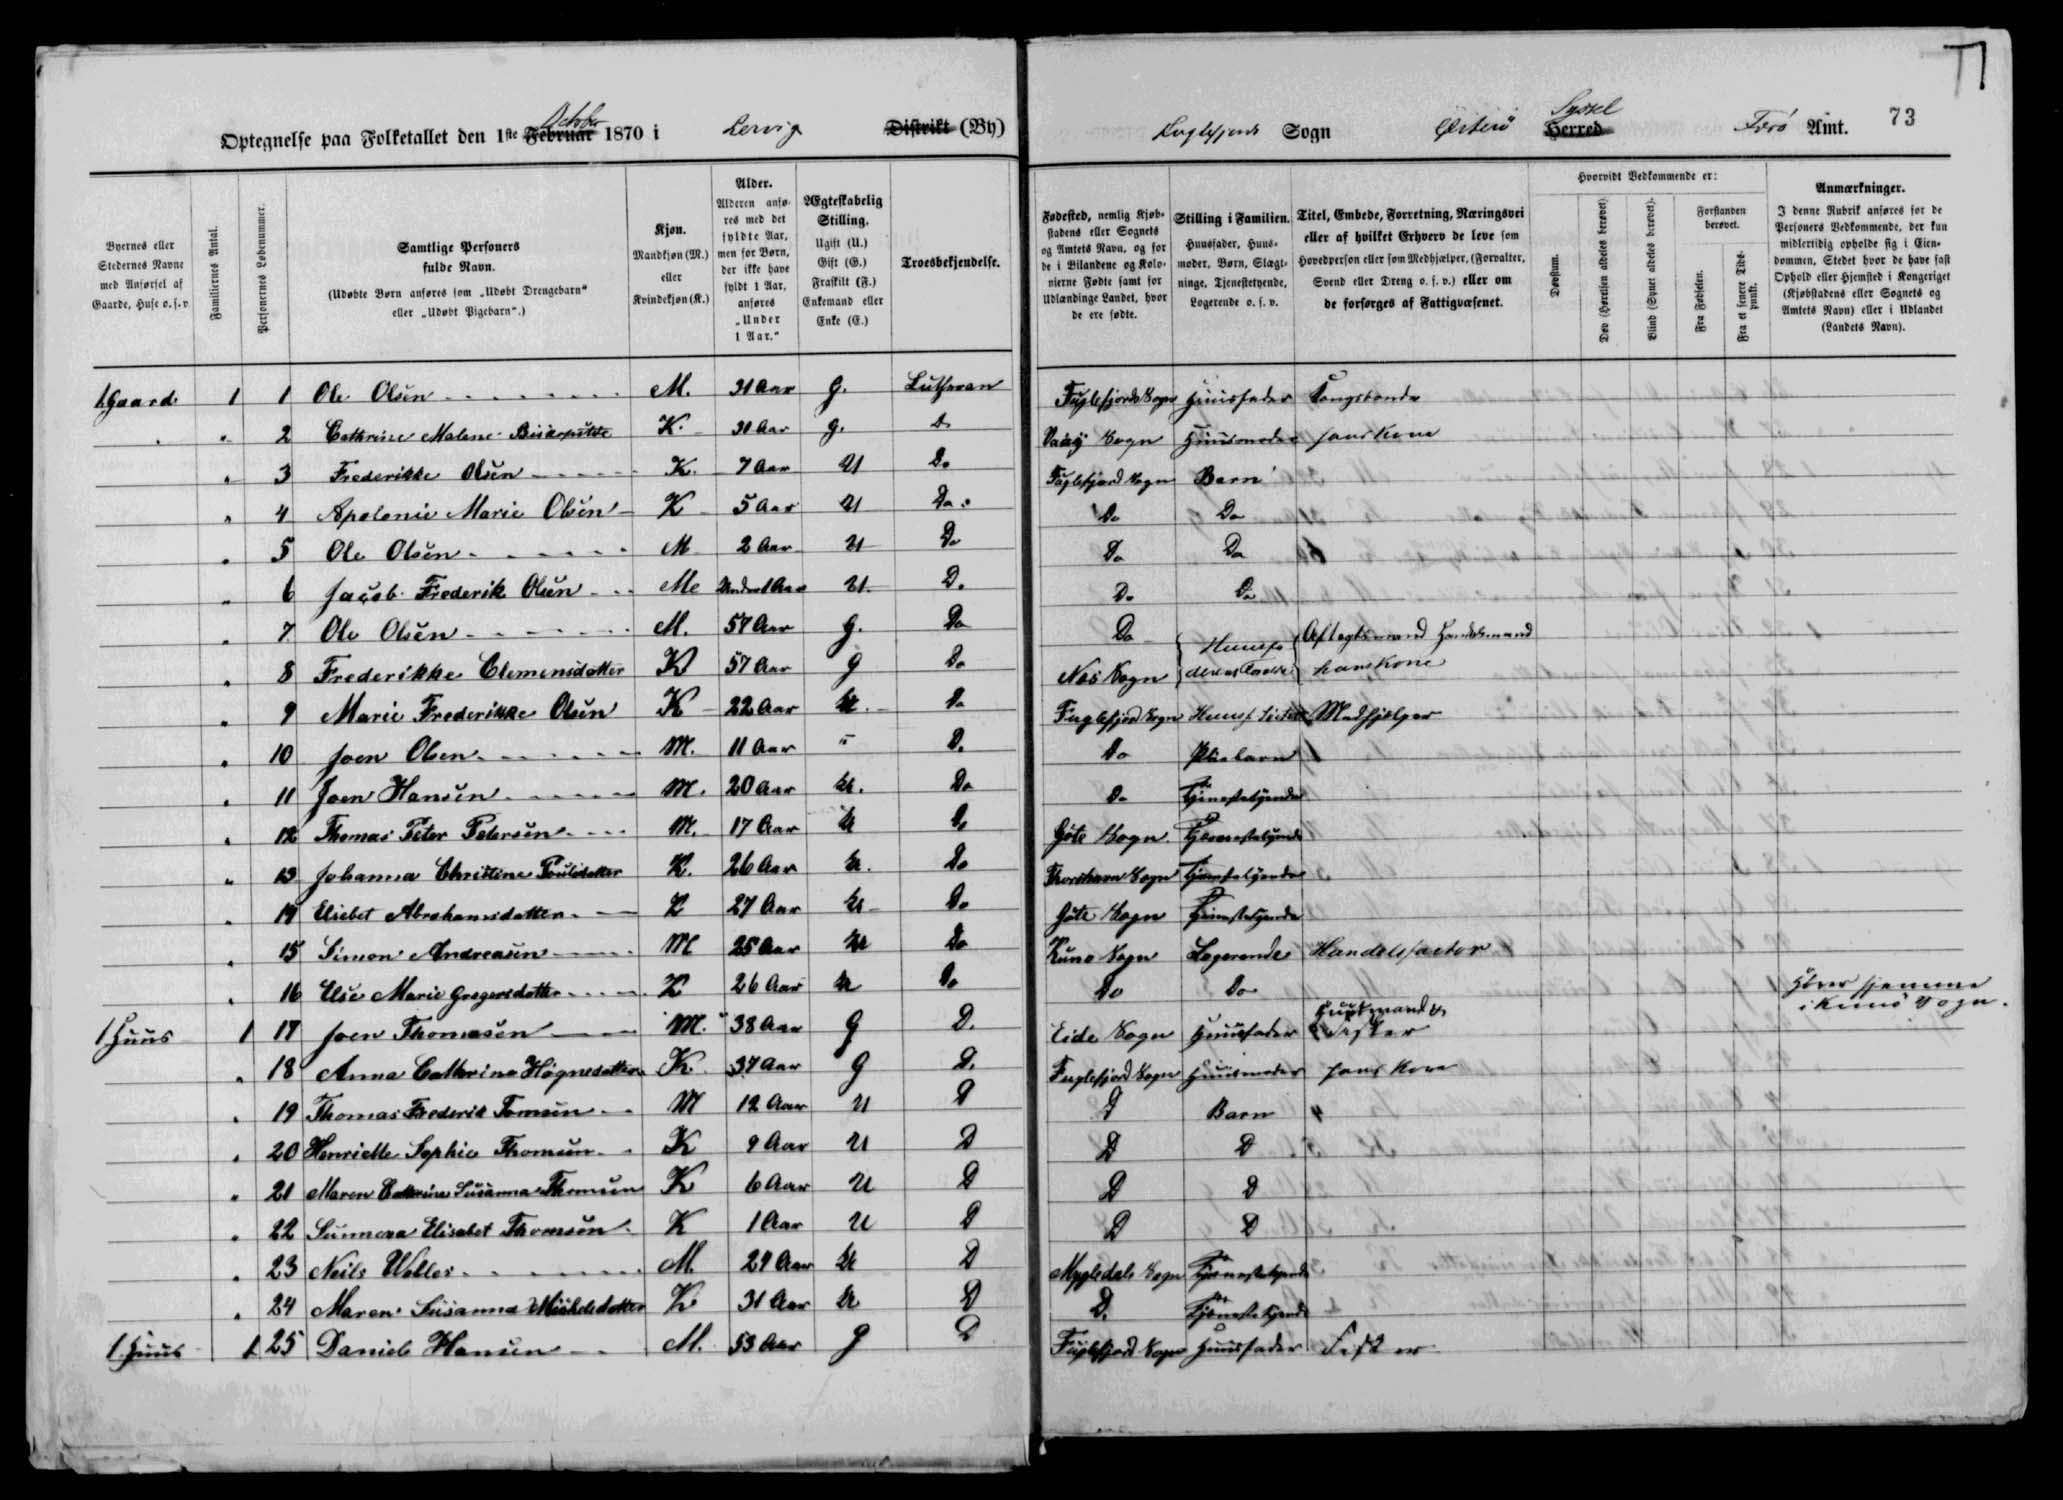 73
Optegnelse paa Folketallet den 1ste Februar October 1870 i Lervig Distrikt (By)
Fuglefjords Sogn Østerø Herred Syssel Færø Amt.
Byernes eller Stedernes Navne med Anførsel af Gaarde, Huse o. s. v.
Familiernes Antal.
Personernes Løbenummer.
Samtlige Personers fulde Navn.
(Udøbte Børn anføres som „Udøbt Drengebarn“ eller „Udøbt Pigebarn“.)
Kjøn.
Mandkjøn (M.) eller Kvindekjøn (K.)
Alder.
Alderen anføres med det fyldte Aar, men for Børn, der ikke have fyldt 1 Aar, anføres „Under 1 Aar.“
Ægteskabelig Stilling.
Ugift (U.) Gift (G.) Fraskilt (F.) Enkemand eller Enke (E.)
Troesbekjendelse.
Fødested, nemlig Kjøbstadens eller Sognets og Amtets Navn, og for de i Bilandene og Kolonierne Fødte samt for Udlændinge Landet, hvor de ere fødte.
Stilling i Familien.
Huusfader, Huusmoder, Børn, Slægtninge, Tjenestetyende, Logerende o. s. v.
Titel, Embede, Forretning, Næringsvei eller af hvilket Erhverv de leve som Hovedperson eller som Medhjælper, (Forvalter, Svend eller Dreng o. s. v.) eller om de forsørges af Fattigvæsenet.
Hvorvidt Vedkommende er:
Døvstum.
Døv (Hørelsen aldeles berøvet).
Blind (Synet aldeles berøvet).
Forstanden berøvet.
Fra Fødselen.
Fra et senere Tidspunkt.
Anmærkninger.
I denne Rubrik anføres for de Personers Vedkommende, der kun midlertidig opholde sig i Eiendommen, Stedet hvor de have fast Ophold eller Hjemsted i Kongeriget (Kjøbstadens eller Sognets og Amtets Navn) eller i Udlandet (Landets Navn).
1 Gaard 1 1 Ole Olsen M. 31 Aar G. Lutheran Fuglefjords Sogn Huusfader Kongsbonde
" 2 Cathrine Malene Biskopstøe K. 31 Aar G. Do Vaaǵ Sogn Huusmoder hans Kone
" 3 Frederikke Olsen K. 7 Aar U Do Fuglefjord Sogn Barn
" 4 Apolonie Marie Olsen K 5 Aar U Do Do Do
" 5 Ole Olsen M 2 Aar U Do Do Do
" 6 Jacob Frederik Olsen M Under 1 Aar U. Do Do Do
" 7 Ole Olsen M. 57 Aar G. Do Do Huusfaderens Forældre Aftegtsmand Handelsmand
" 8 Frederikke Clemensdatter K 57 Aar G Do Næs Sogn hans Kone
" 9 Marie Frederikke Olsen K 22 Aar U. Do Fuglefjord Sogn Huusf. Søster Medhjelper
" 10 Joen Olsen M. 11 Aar " Do Do Pleiebarn
" 11 Joen Hansen M. 20 Aar U. Do Do Tjenestetyende
" 12 Thomas Peter Petersen M. 17 Aar U Do Gøte Sogn Tjenestetyende
" 13 Johanna Christine Poulsdatter K. 26 Aar U. Do Thorshavn Sogn Tjenestetyende
" 14 Elsebet Abrahamsdatter K 27 Aar U Do Gøte Sogn Tjenestetyende
" 15 Simon Andreasen M 25 Aar U Do Kunø Sogn Logerende Handelsfactor
" 16 Else Marie Gregersdatter K 26 Aar U Do Do Do Hører hjemme i Kunø Sogn.
1 Huus 1 17 Joen Thomasen M. 38 Aar G D. Eide Sogn Huusfader Huusmand & Fisker
" 18 Anna Cathrina Høgnesdatter K. 37 Aar G D. Fuglefjord Sogn Huusmoder hans Kone
" 19 Thomas Frederik Tomsen M 12 Aar U D D Barn
" 20 Henriette Sophie Thomsen K 9 Aar U D D D
" 21 Maren Cathrine Susanna Thomsen K 6 Aar U D D D
" 22 Sunneva Elisabet Thomsen K 1 Aar U D D D
" 23 Neils M. 29 Aar U D Mygledals Sogn Tjenestetyende
" 24 Maren Susanna Mickelsdatter K 31 Aar U D D. Tjenestetyende
1 Huus 1 25 Daniel Hansen M. 53 Aar G D Fuglefjord Sogn Huusfader Fisker